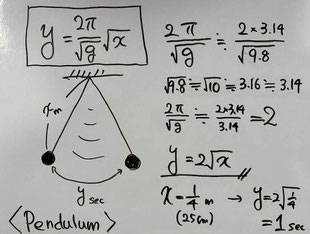 y = 2π/√g √x
x m
y sec
<Pendulum>
2π/√g ≒ 2×3.14/√9.8
√9.8 ≒ √10 ≒ 3.16 ≒ 3.14
2π/√g ≒ 2×3.14/3.14 = 2
y = 2√x
x = 1/4 m → y = 2√1/4
(25cm) = 1 sec